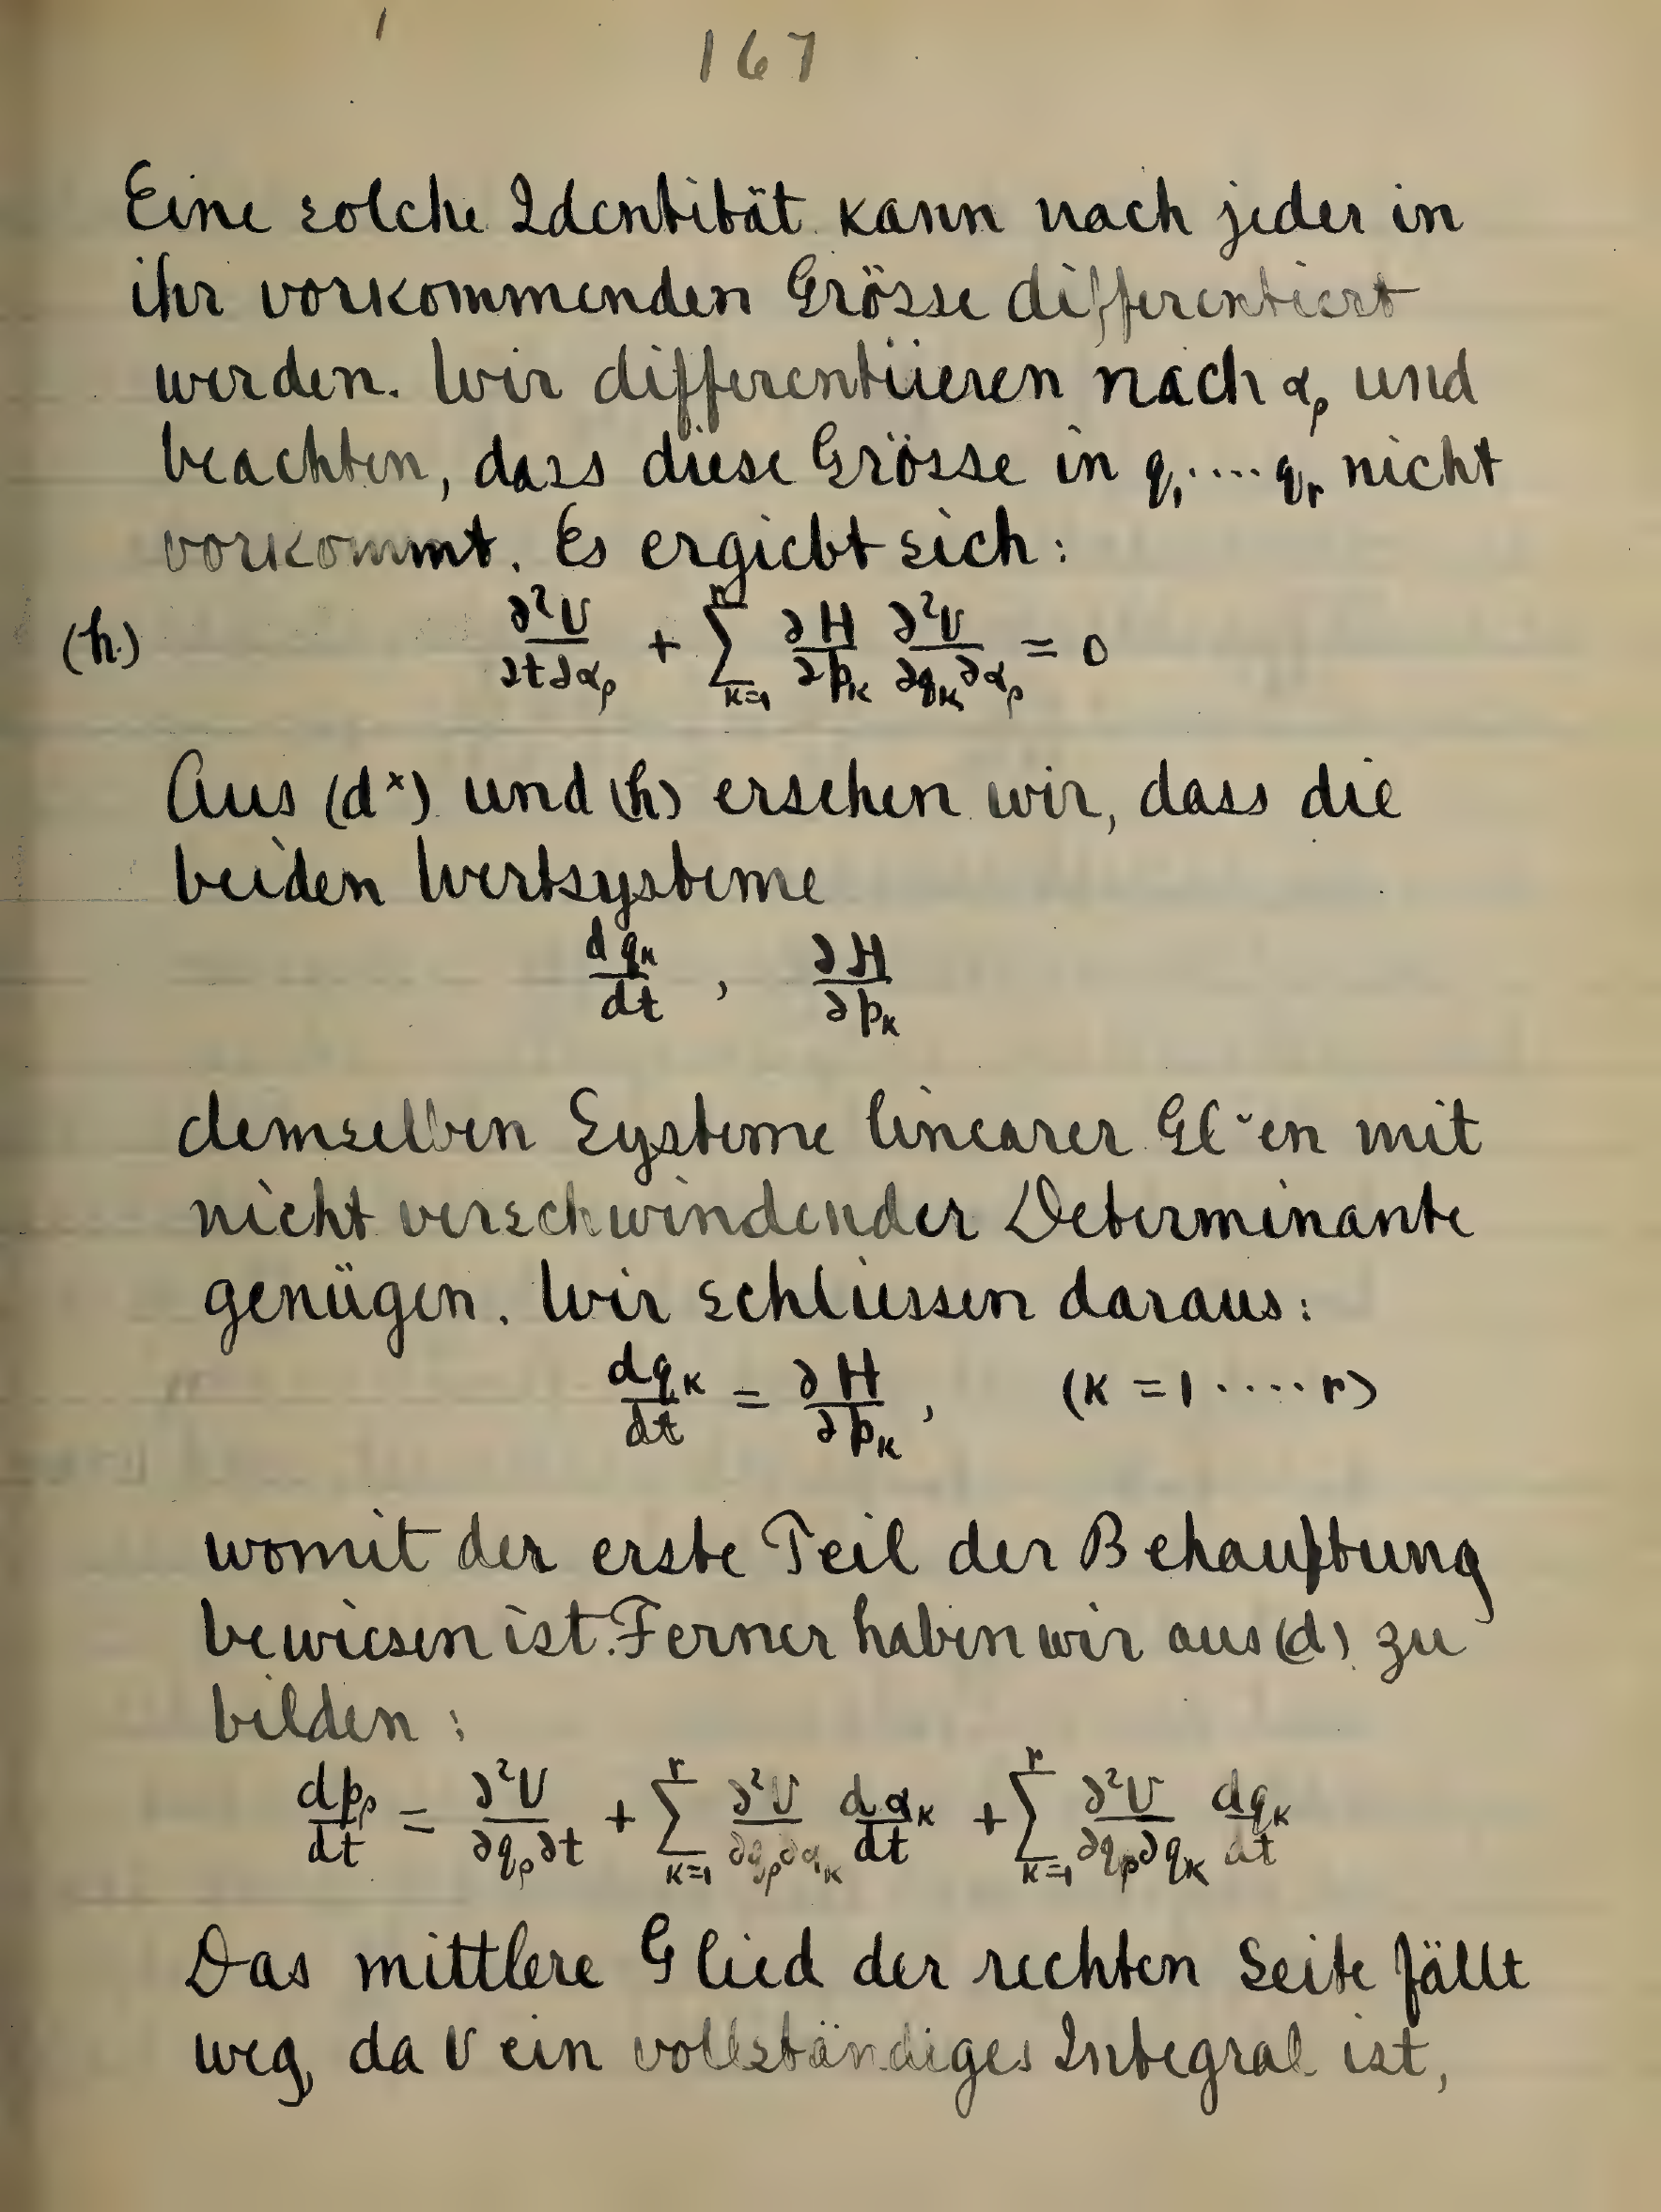 167
Eine solche Identität kann nach jeder in
ihr vorkommenden Grösse differentiert
werden. Wir differentiieren nach α_ρ und
beachten, dass diese Grösse in q_1 .... q_r nicht
vorkommt. Es ergiebt sich:
(h) ∂²V/∂t∂α_ρ + ∑_{κ=1}^{r} ∂H/∂p_κ ∂²V/∂q_κ∂α_ρ = 0
Aus (d^x) und (h) ersehen wir, dass die
beiden Wertsysteme
dq_κ/dt , ∂H/∂p_κ
demselben Systeme linearer Gl˘en mit
nicht verschwindender Determinante
genügen. Wir schliessen daraus:
dq_κ/dt = ∂H/∂p_κ , (κ = 1 .... r)
womit der erste Teil der Behauptung
bewiesen ist. Ferner haben wir aus (d) zu
bilden:
dp_ρ/dt = ∂²V/∂q_ρ∂t + ∑_{κ=1}^{r} ∂²V/∂q_ρ∂α_κ dα_κ/dt + ∑_{κ=1}^{r} ∂²V/∂q_ρ∂q_κ dq_κ/dt
Das mittlere Glied der rechten Seite fällt
weg, da V ein vollständiges Integral ist,